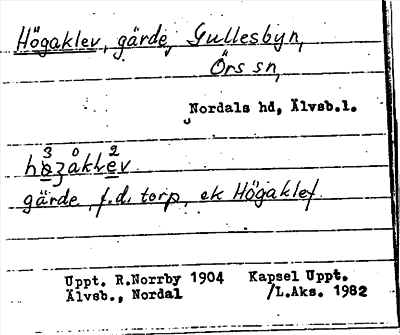 Högaklev, gärde, Gullesbyn,
Örs sn,
Nordals hd, Älvsb.l.
3 0 2
høʒåklev
gärde, f.d. torp, ek Högaklef
Uppt. R.Norrby 1904 Kapsel Uppt.
Älvsb., Nordal /L.Aks. 1982